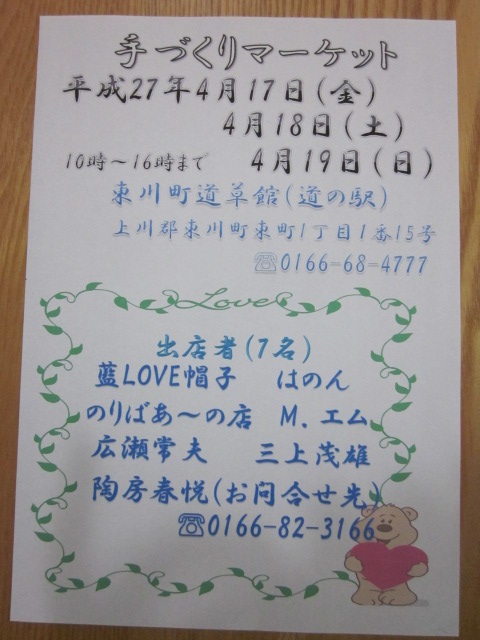 手づくりマーケット
平成27年4月17日(金)
4月18日(土)
10時～16時まで　4月19日(日)
東川町道草館(道の駅)
上川郡東川町東町1丁目1番15号
☎0166-68-4777
Love
出店者(7名)
藍LOVE帽子　はのん
のりばあ～の店　M.エム
広瀬常夫　三上茂雄
陶房春悦(お問合せ先)
☎0166-82-3166